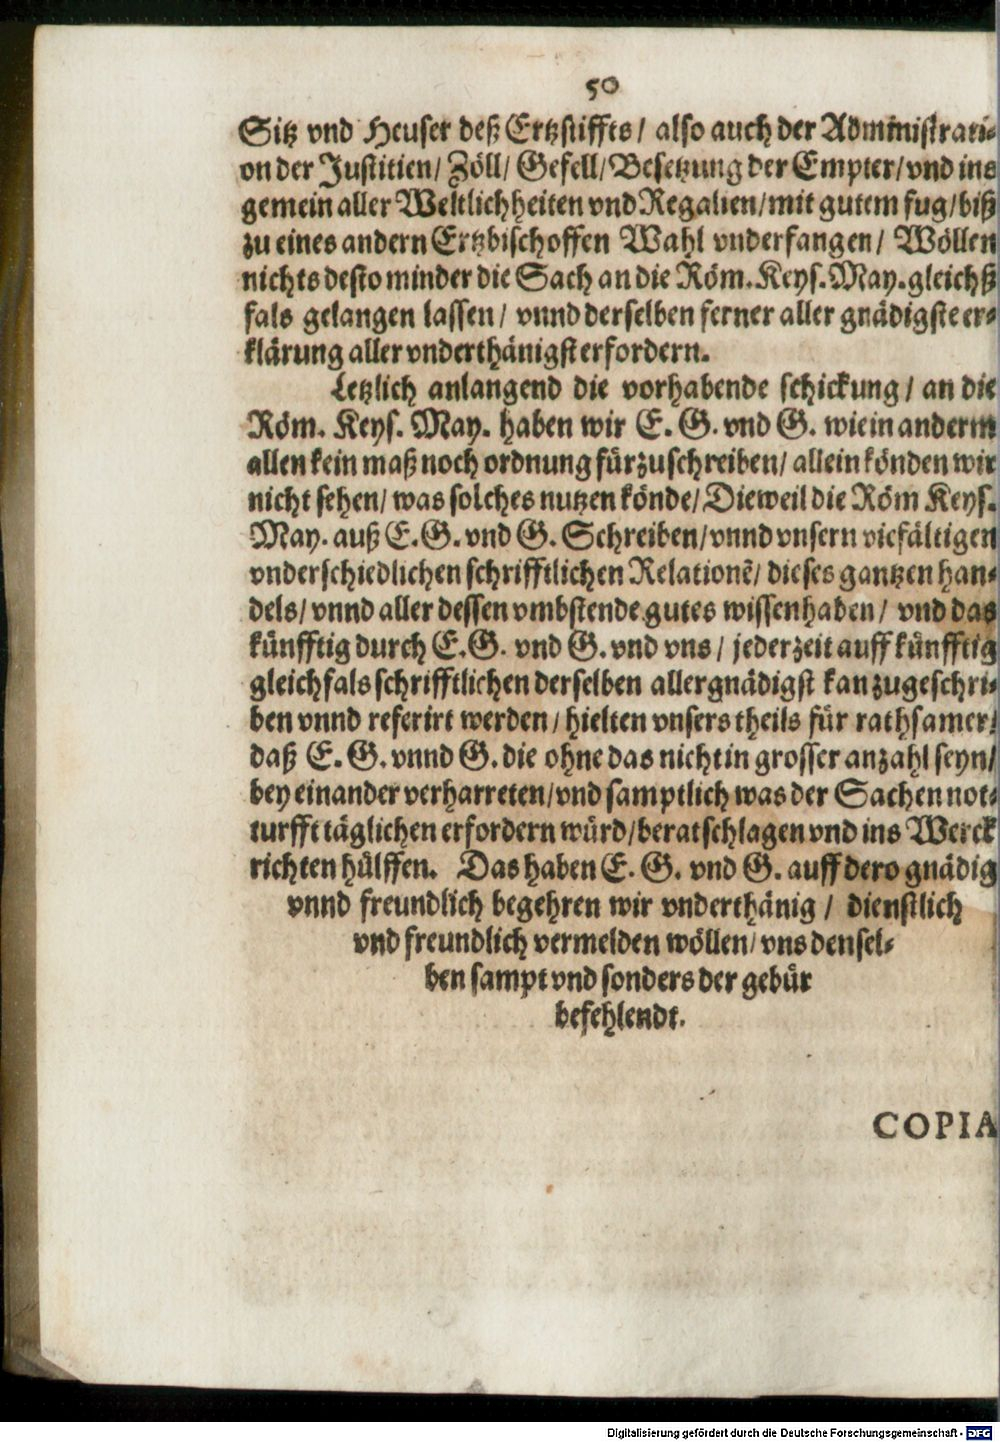 50
Sitz vnd Heuser deß Ertzstiffts / also auch der Administrati-
on der Justitien / Zöll / Gefell / Besetzung der Empter / vnd ins
gemein aller Weltlichheiten vnd Regalien / mit gutem fug / biß
zu eines andern Ertzbischoffen Wahl vnderfangen / Wöllen
nichts desto minder die Sach an die Röm. Keys. May. gleichß
fals gelangen lassen / vnnd derselben ferner aller gnädigste er-
klärung aller vnderthänigst erfordern.
Letzlich anlangend die vorhabende schickung / an die
Röm. Keys. May. haben wir E. G. vnd G. wie in anderm
allen kein maß noch ordnung fürzuschreiben / allein könden wir
nicht sehen / was solches nutzen könde / Dieweil die Röm Keys.
May. auß E. G. vnd G. Schreiben / vnnd vnsern vielfältigen
vnderschiedlichen schrifftlichen Relationẽ / dieses gantzen han-
dels / vnnd aller dessen vmbstende gutes wissen haben / vnd das
künfftig durch E. G. vnd G. vnd vns / jederzeit auff künfftig
gleichfals schrifftlichen derselben allergnädigst kan zugeschri-
ben vnnd referirt werden / hielten vnsers theils für rathsamer /
daß E. G. vnnd G. die ohne das nicht in grosser anzahl seyn /
bey einander verharreten / vnd samptlich was der Sachen not-
turfft täglichen erfordern würd / beratschlagen vnd ins Werck
richten hülffen. Das haben E. G. vnd G. auff dero gnädig
vnnd freundlich begehren wir vnderthänig / dienstlich
vnd freundlich vermelden wöllen / vns densel-
ben sampt vnd sonders der gebür
befehlendt.
COPIA
Digitalisierung gefördert durch die Deutsche Forschungsgemeinschaft - DFG